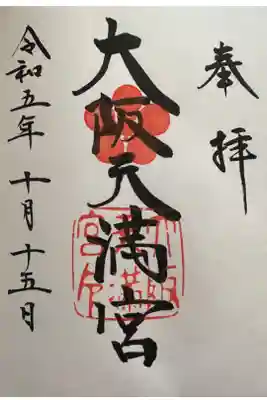 奉拝
大阪天満宮
令和五年 十月 十五日